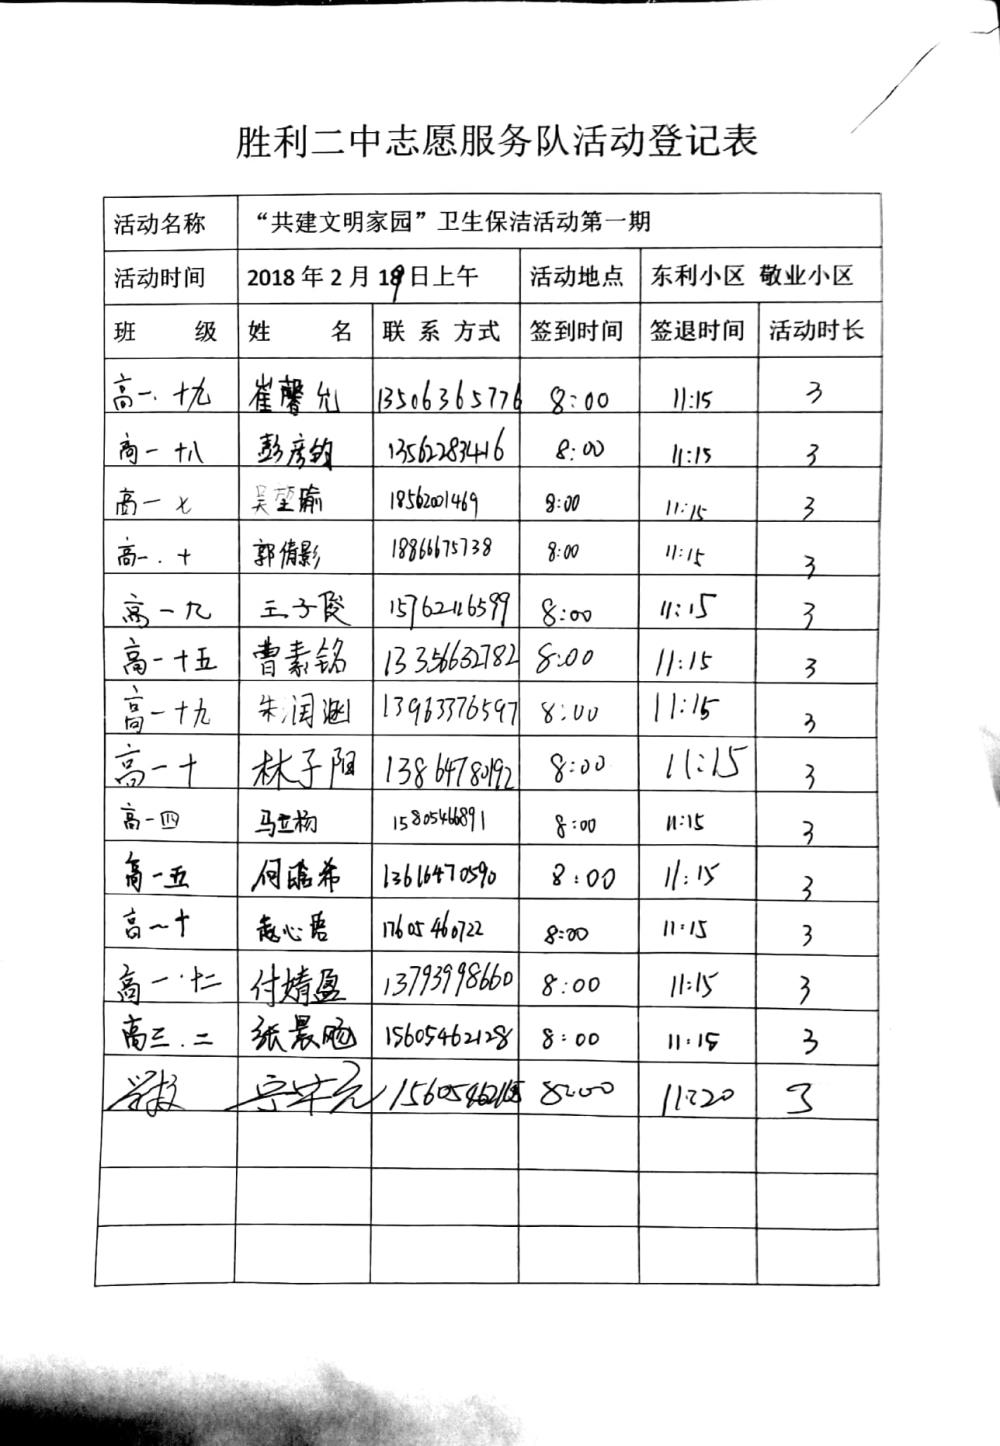 胜利二中志愿服务队活动登记表
活动名称 “共建文明家园”卫生保洁活动第一期
活动时间 2018 年 2 月 19日上午 活动地点 东利小区 敬业小区
班 级 姓 名 联 系 方式 签到时间 签退时间 活动时长
高一、十九 崔馨允 13506365776 8:00 11:15 3
高一 十八 彭彦钧 13562283416 8:00 11:15 3
高一 七 吴堃瑜 18562001469 8:00 11:15 3
高一.十 郭倩影 18866675738 8:00 11:15 3
高一九 王子俊 15762116599 8:00 11:15 3
高一十五 曹素铭 13356632782 8:00 11:15 3
高一十九 朱润涵 13963376597 8:00 11:15 3
高一十 林子阳 13864780192 8:00 11:15 3
高一四 马立杨 15805466891 8:00 11:15 3
高一五 何 希 13616470590 8:00 11:15 3
高一十 赵心语 17605460722 8:00 11:15 3
高一·十二 付婧盈 13793998660 8:00 11:15 3
高三.二 张晨旸 15605462128 8:00 11:15 3
学校 8:00 11:20 3